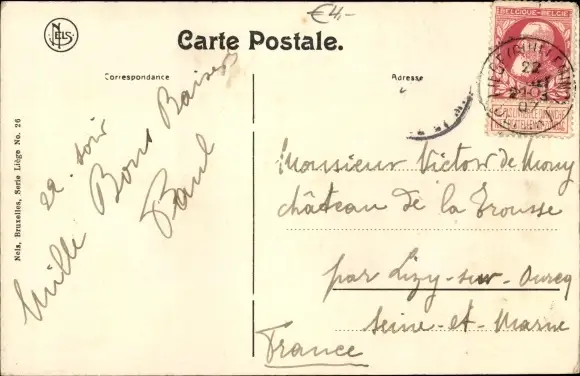 €4,-
NELS
Carte Postale.
Correspondance
Adresse
BELGIQUE-BELGIË
22
07
Nels, Bruxelles, Serie Liège No. 26
22. soir
Mille Bons Baisers
Paul
Monsieur Victor de Mony
château de la Trousse
par Lizy-sur-Ourcq
Seine-et-Marne
France